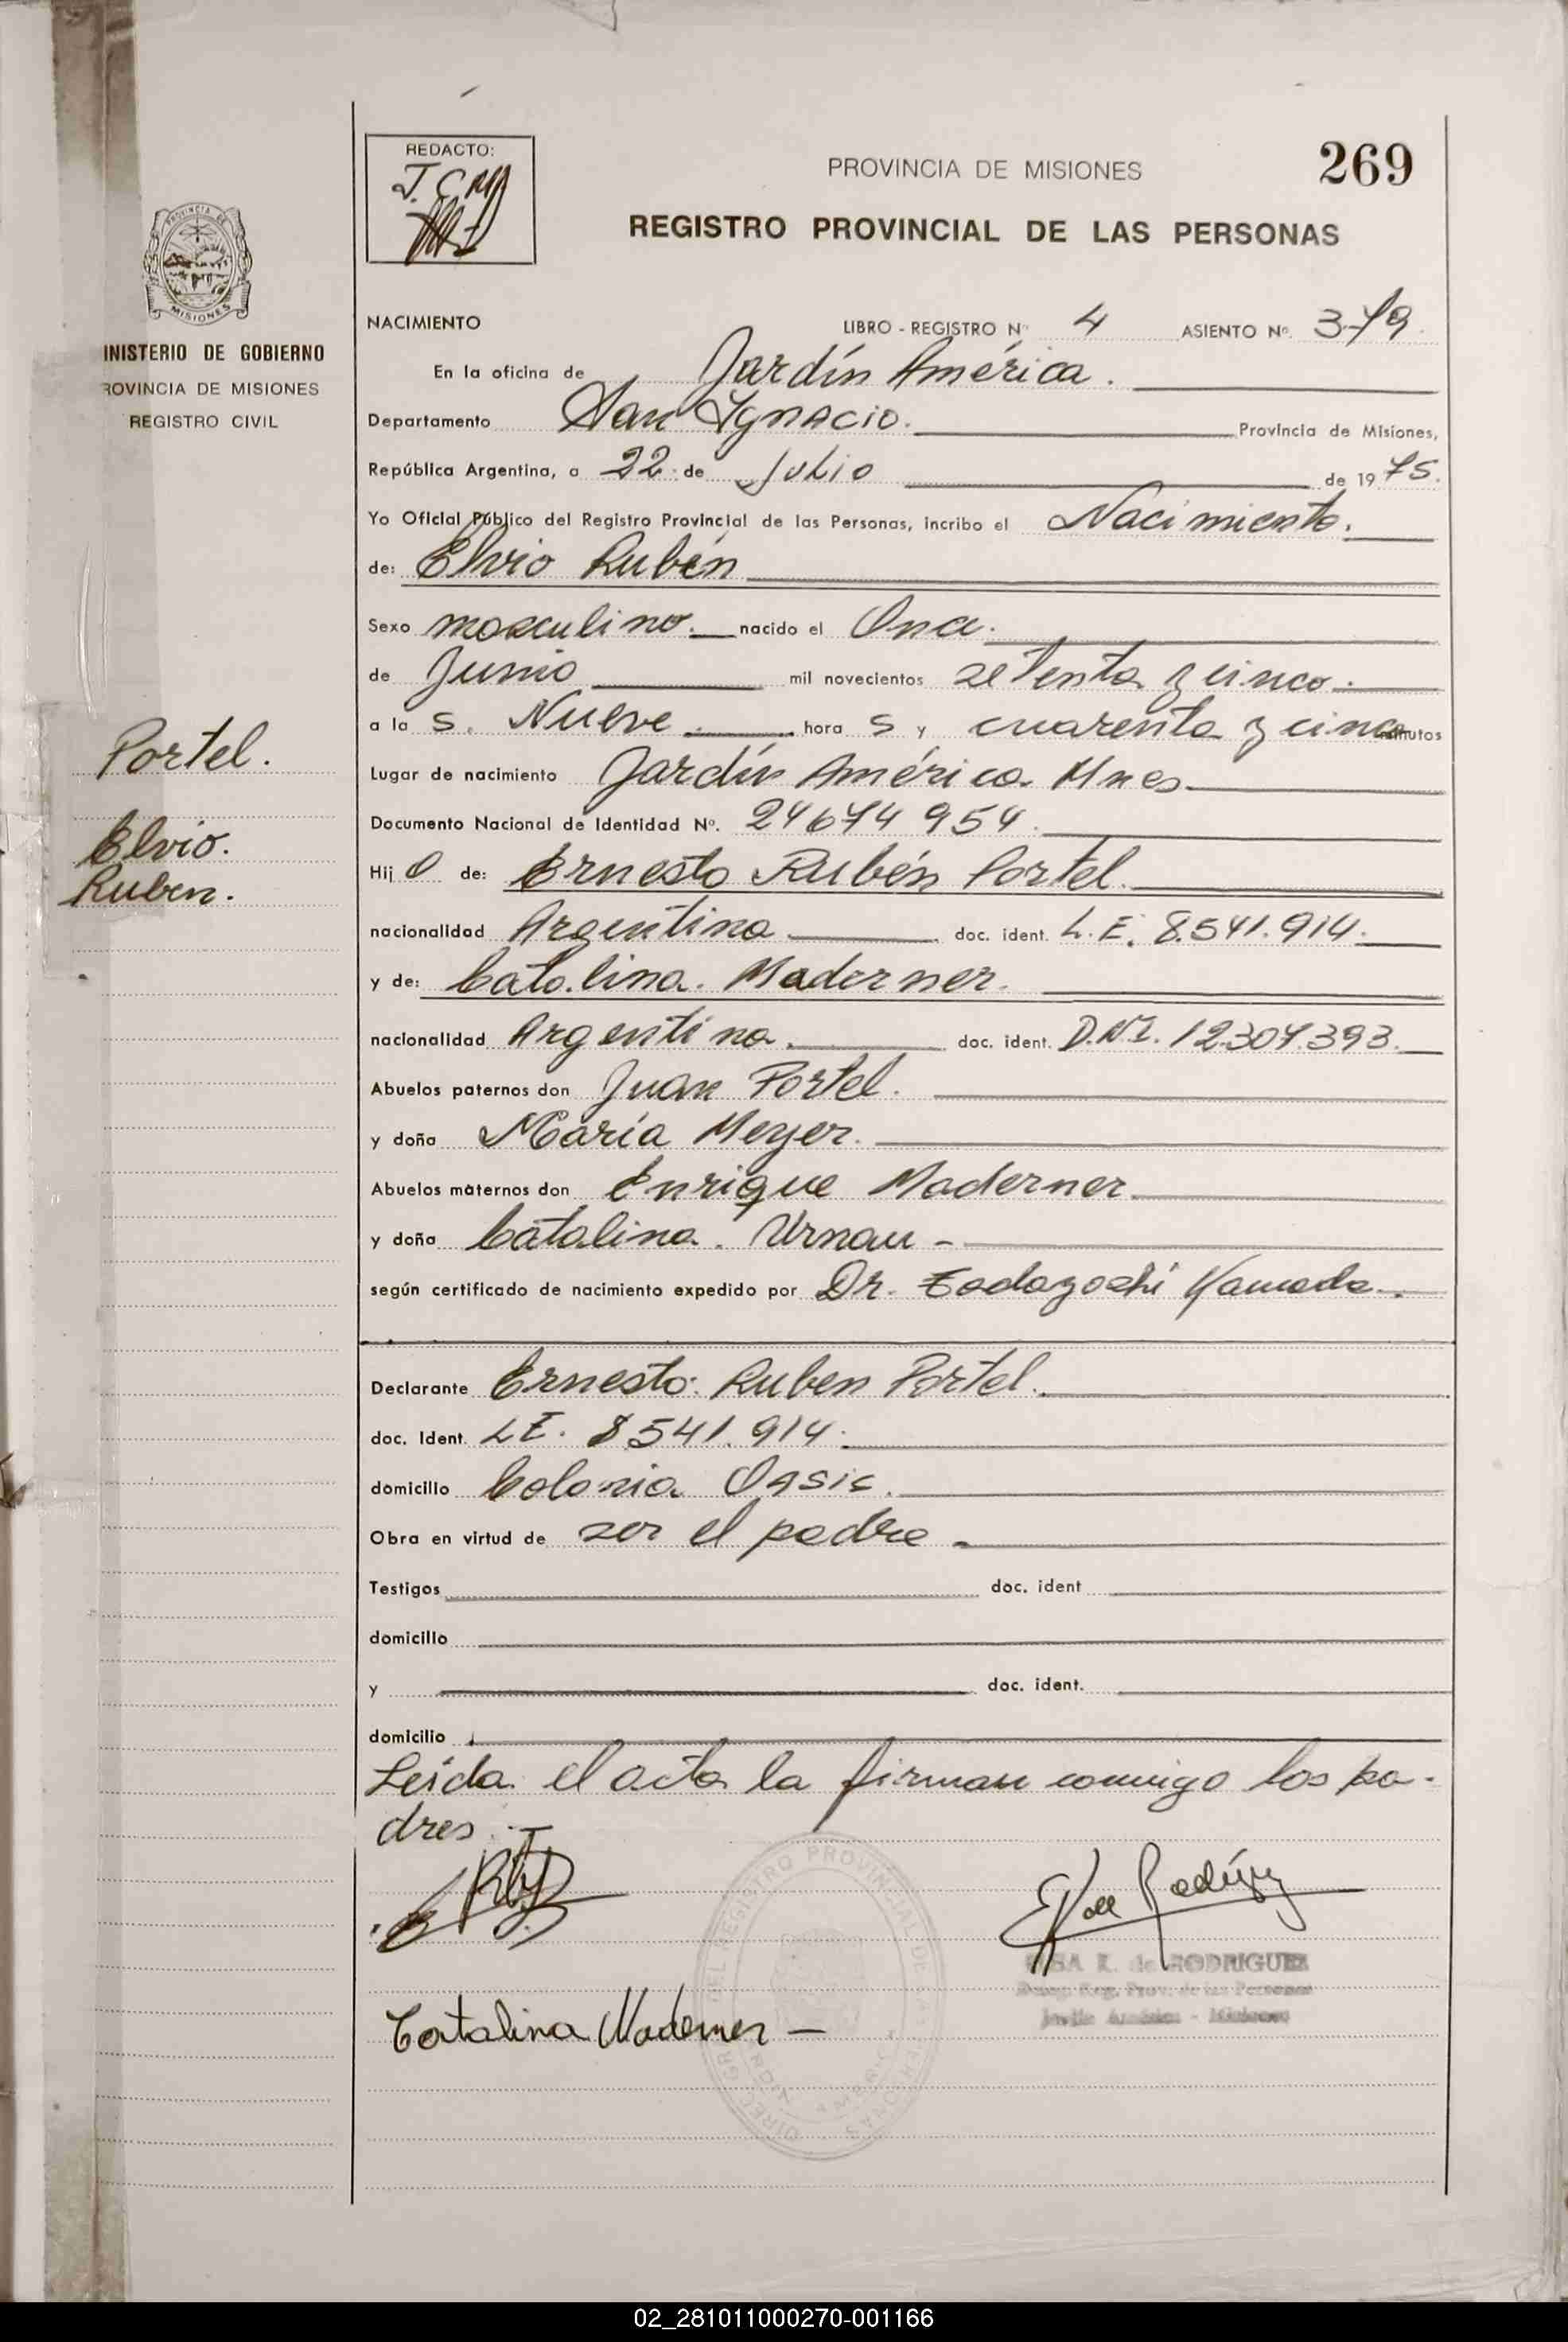 REDACTO:
PROVINCIA DE MISIONES
269
REGISTRO PROVINCIAL DE LAS PERSONAS
PROVINCIA DE
MISIONES
INISTERIO DE GOBIERNO
ROVINCIA DE MISIONES
REGISTRO CIVIL
NACIMIENTO LIBRO - REGISTRO Nº 4 ASIENTO Nº. 379
En la oficina de Jardín América.
Departamento San Ignacio. Provincia de Misiones,
República Argentina, a 22 de Julio de 1975.
Yo Oficial Público del Registro Provincial de las Personas, incribo el Nacimiento.
de: Elvio Rubén
Sexo masculino. nacido el Once.
de Junio mil novecientos setenta y cinco.
a la s. Nueve hora s y cuarenta y cinco minutos
Portel.
Elvio.
Ruben.
Lugar de nacimiento Jardín América. Mnes.
Documento Nacional de Identidad Nº. 24674954.
Hij o de: Ernesto Rubén Portel.
nacionalidad Argentina doc. ident. L.E. 8.541.914.
y de: Catalina. Maderner.
nacionalidad Argentina. doc. ident. D.N.I. 12.307.393.
Abuelos paternos don Juan Portel.
y doña María Meyer.
Abuelos maternos don Enrique Maderner.
y doña Catalina. Urnau -
según certificado de nacimiento expedido por Dr. Kamada.
Declarante Ernesto Ruben Portel.
doc. Ident. LE. 8.541.914.
domicilio Colonia Oasis.
Obra en virtud de ser el padre -
Testigos doc. ident
domicilio
y doc. ident.
domicilio
Leída el acta la firman conmigo los pa-
dres.-
ELSA K. de RODRIGUEZ
Catalina Maderner -
02_281011000270-001166